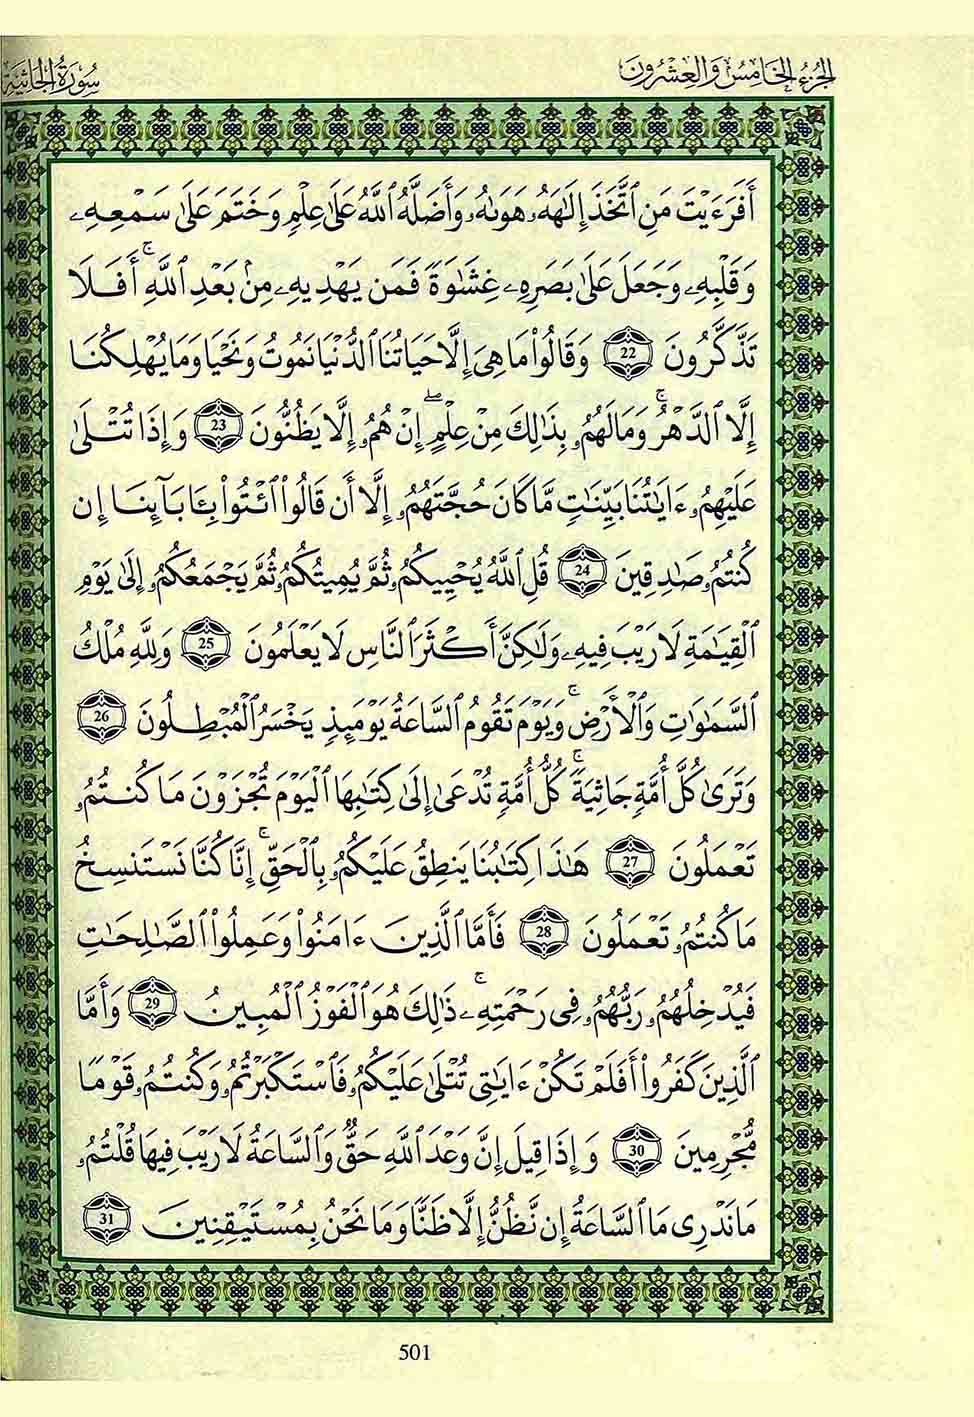 الجزء الخامس والعشرون
سورة الجاثية
أَفَرَءَيْتَ مَنِ ٱتَّخَذَ إِلَٰهَهُۥ هَوَىٰهُ وَأَضَلَّهُ ٱللَّهُ عَلَىٰ عِلْمٖ وَخَتَمَ عَلَىٰ سَمْعِهِۦ
وَقَلْبِهِۦ وَجَعَلَ عَلَىٰ بَصَرِهِۦ غِشَٰوَةٗ فَمَن يَهْدِيهِ مِنۢ بَعْدِ ٱللَّهِۚ أَفَلَا
تَذَّكَّرُونَ 22 وَقَالُوا۟ مَا هِىَ إِلَّا حَيَاتُنَا ٱلدُّنْيَا نَمُوتُ وَنَحْيَا وَمَا يُهْلِكُنَا
إِلَّا ٱلدَّهْرُۚ وَمَا لَهُمُۥ بِذَٰلِكَ مِنْ عِلْمٍۖ إِنْ هُمُۥ إِلَّا يَظُنُّونَ 23 وَإِذَا تُتْلَىٰ
عَلَيْهِمُۥ ءَايَٰتُنَا بَيِّنَٰتٖ مَّا كَانَ حُجَّتَهُمُۥ إِلَّا أَن قَالُوا۟ ٱئْتُوا۟ بِـَٔابَآئِنَا إِن
كُنتُمُۥ صَٰدِقِينَ 24 قُلِ ٱللَّهُ يُحْيِيكُمُۥ ثُمَّ يُمِيتُكُمُۥ ثُمَّ يَجْمَعُكُمُۥ إِلَىٰ يَوْمِ
ٱلْقِيَٰمَةِ لَا رَيْبَ فِيهِۦ وَلَٰكِنَّ أَكْثَرَ ٱلنَّاسِ لَا يَعْلَمُونَ 25 وَلِلَّهِ مُلْكُ
ٱلسَّمَٰوَٰتِ وَٱلْأَرْضِۚ وَيَوْمَ تَقُومُ ٱلسَّاعَةُ يَوْمَئِذٖ يَخْسَرُ ٱلْمُبْطِلُونَ 26
وَتَرَىٰ كُلَّ أُمَّةٖ جَاثِيَةٗۚ كُلُّ أُمَّةٖ تُدْعَىٰ إِلَىٰ كِتَٰبِهَا ٱلْيَوْمَ تُجْزَوْنَ مَا كُنتُمُۥ
تَعْمَلُونَ 27 هَٰذَا كِتَٰبُنَا يَنطِقُ عَلَيْكُمُۥ بِٱلْحَقِّۚ إِنَّا كُنَّا نَسْتَنسِخُ
مَا كُنتُمُۥ تَعْمَلُونَ 28 فَأَمَّا ٱلَّذِينَ ءَامَنُوا۟ وَعَمِلُوا۟ ٱلصَّٰلِحَٰتِ
فَيُدْخِلُهُمُۥ رَبُّهُمُۥ فِى رَحْمَتِهِۦۚ ذَٰلِكَ هُوَ ٱلْفَوْزُ ٱلْمُبِينُ 29 وَأَمَّا
ٱلَّذِينَ كَفَرُوا۟ أَفَلَمْ تَكُنْ ءَايَٰتِى تُتْلَىٰ عَلَيْكُمُۥ فَٱسْتَكْبَرْتُمُۥ وَكُنتُمُۥ قَوْمٗا
مُّجْرِمِينَ 30 وَإِذَا قِيلَ إِنَّ وَعْدَ ٱللَّهِ حَقّٞ وَٱلسَّاعَةُ لَا رَيْبَ فِيهَا قُلْتُمُۥ
مَا نَدْرِى مَا ٱلسَّاعَةُ إِن نَّظُنُّ إِلَّا ظَنّٗا وَمَا نَحْنُ بِمُسْتَيْقِنِينَ 31
501